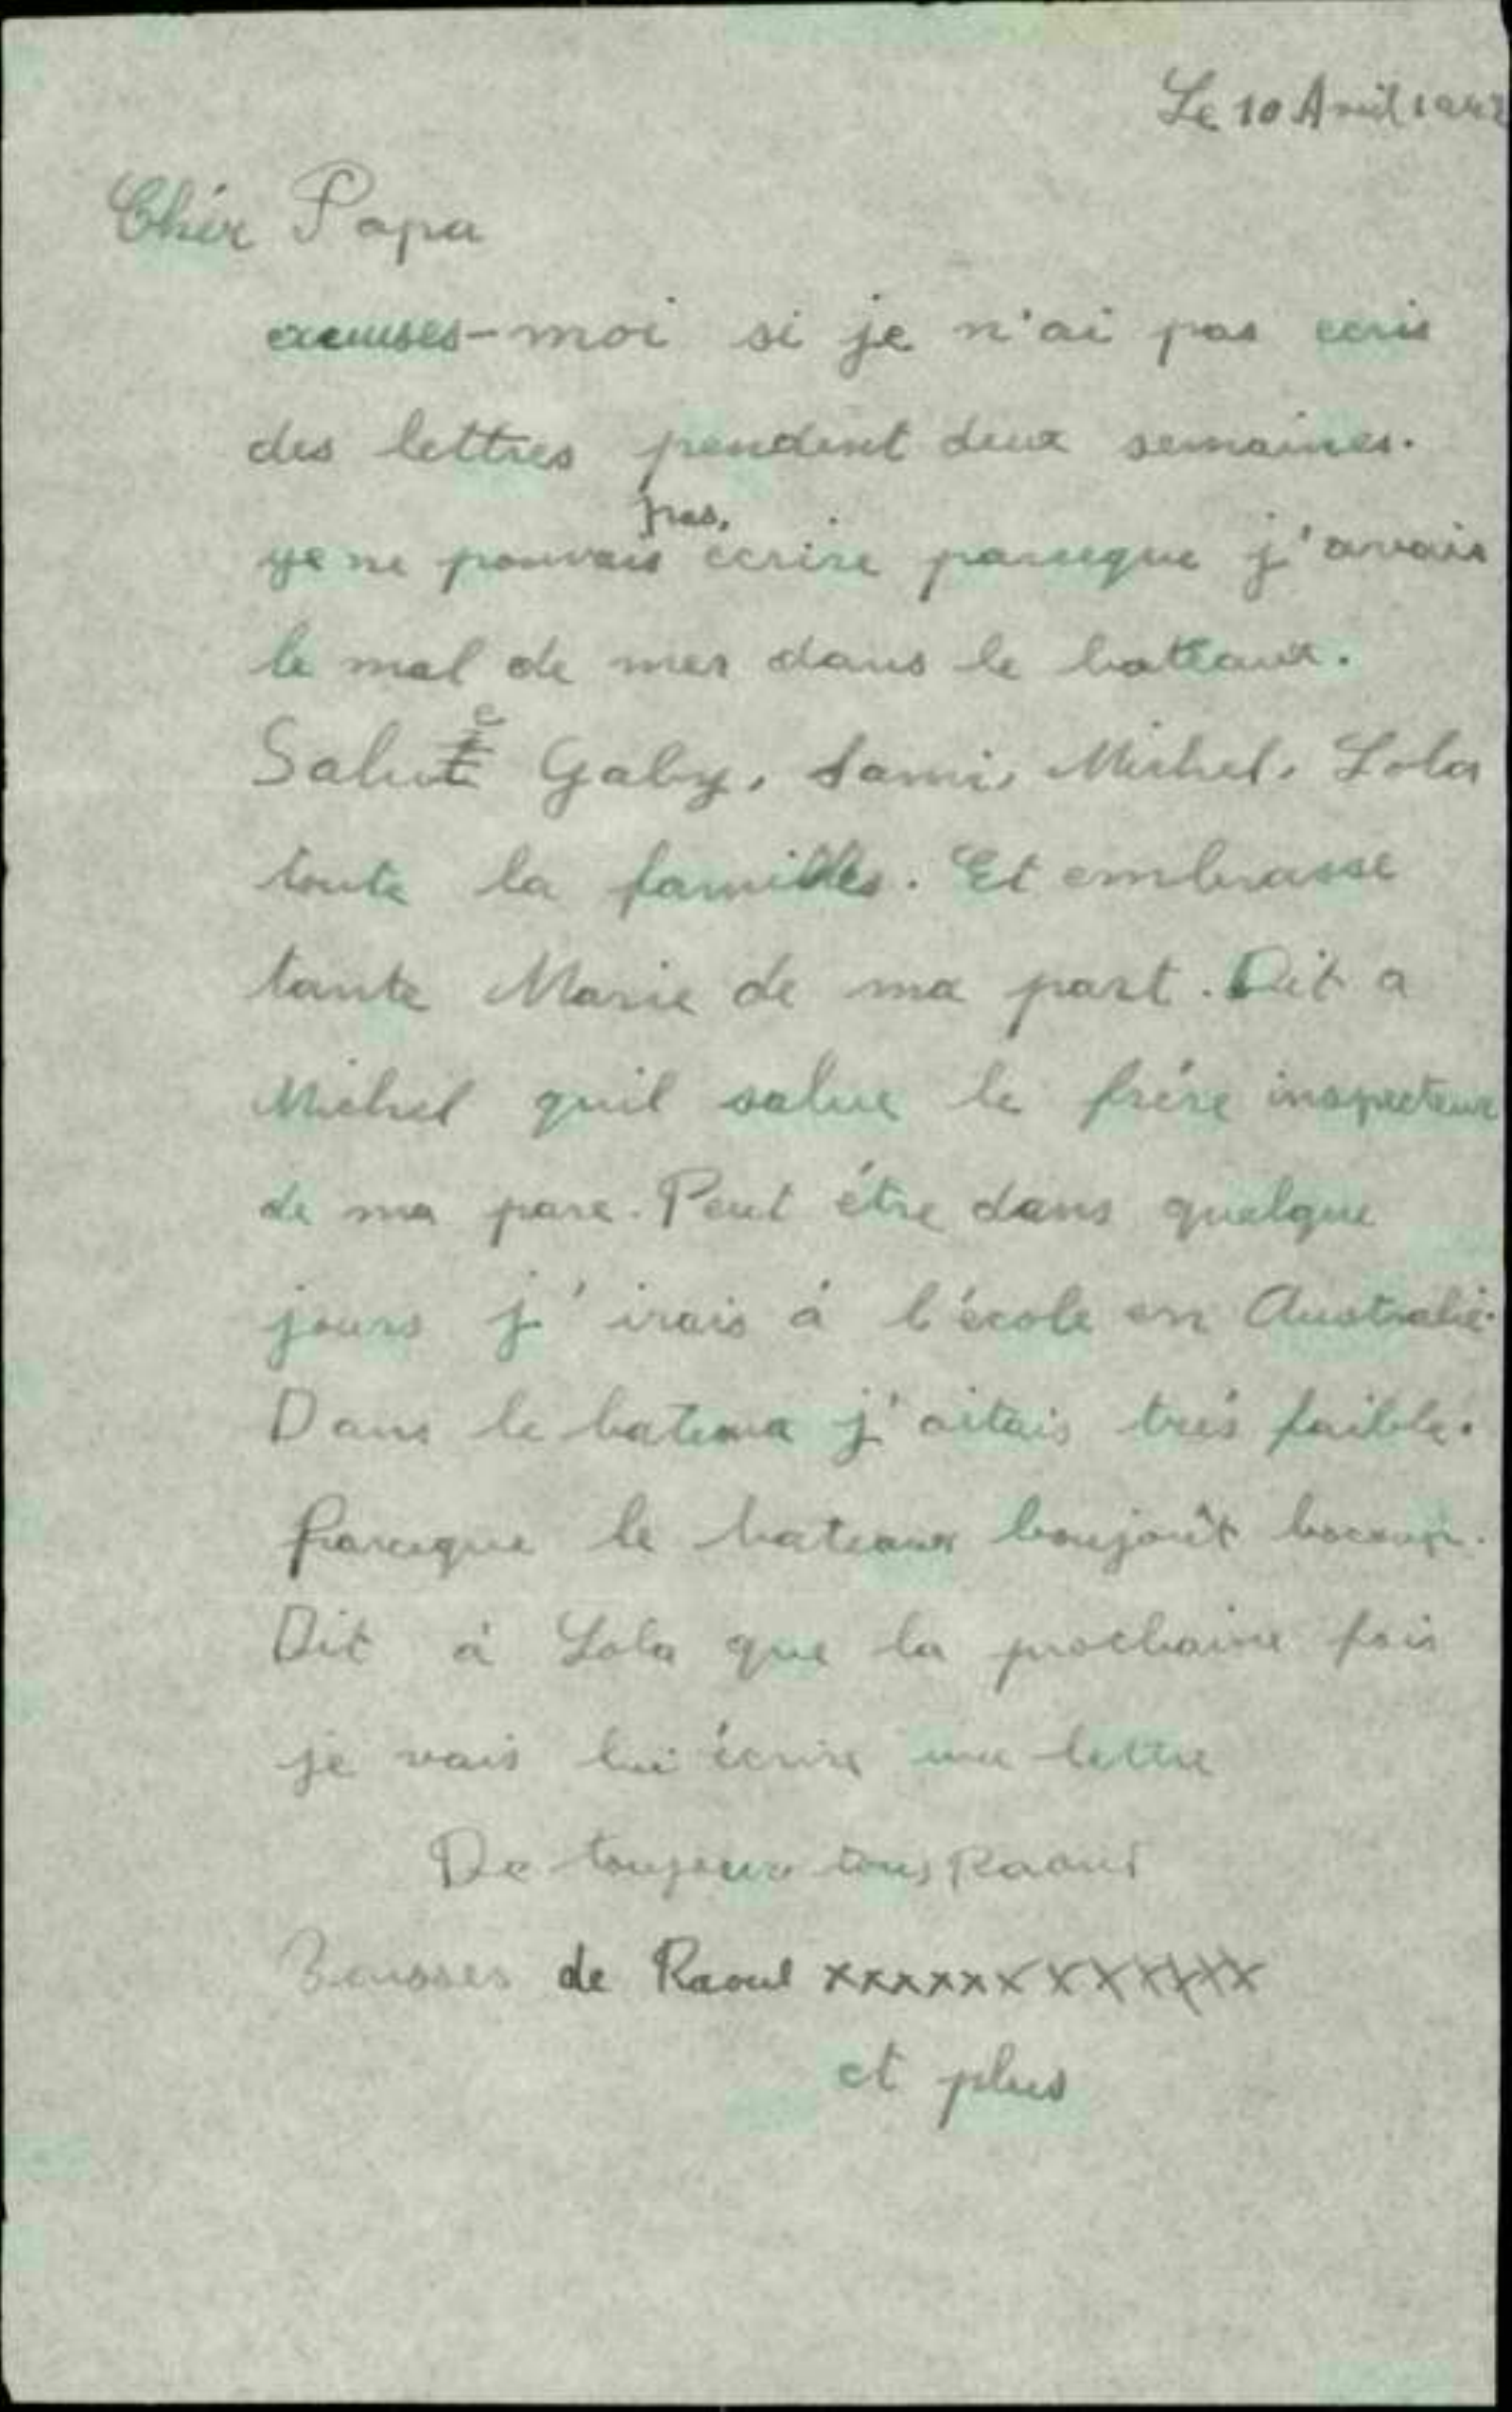 Le 10 Avril 1942
Chér Papa
excuses-moi si je n'ai pas ecris
des lettres pendent deux semaines.
pas.
je ne pouvais écrire parceque j'avais
le mal de mer dans le bateaux.
Salue Gaby, Sami, Michel, Lola
toute la familles. Et embrasse
tante Marie de ma part. Dit a
Michel quil salue le frére inspecteur
de ma pare. Peut étre dans quelque
jours j'irais á l'école en Australie.
Dans le bateaux j'aitais trés faible.
Parceque le bateaux boujait bocoup.
Dit á Lola que la prochaine fois
je vais lui écrire une lettre
De toujours Raoul
Bousses de Raoul xxxxxxxxxxxxx
et plus